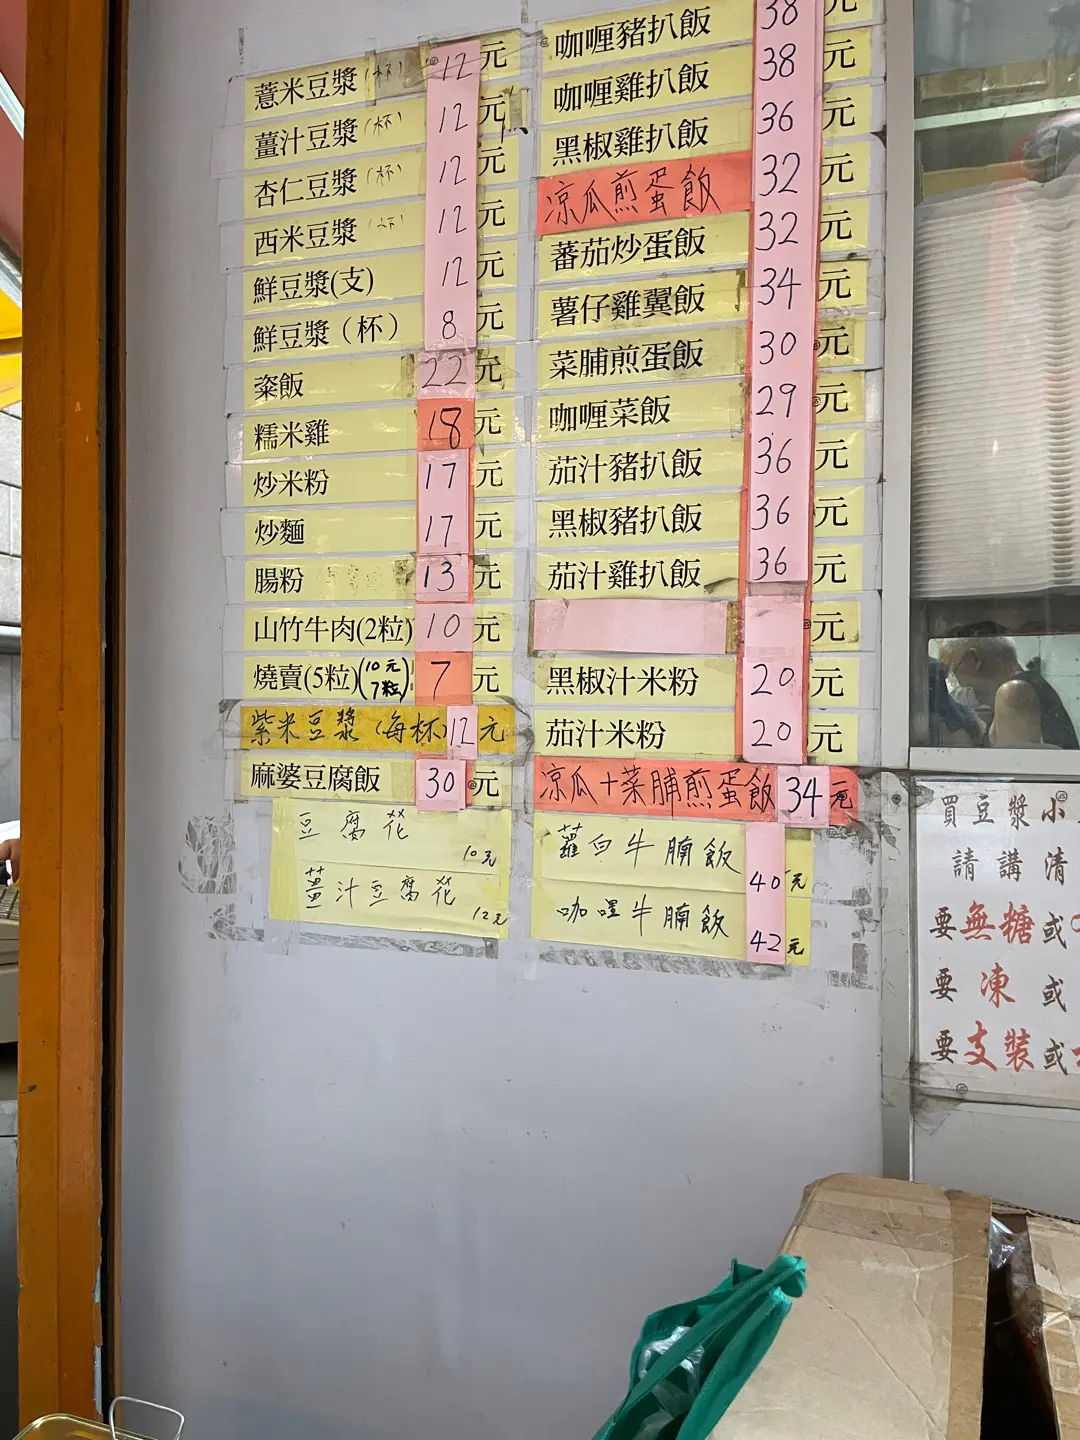 薏米豆漿(杯) 12元
薑汁豆漿(杯) 12元
杏仁豆漿(杯) 12元
西米豆漿(杯) 12元
鮮豆漿(支) 12元
鮮豆漿(杯) 8元
粢飯 22元
糯米雞 18元
炒米粉 17元
炒麵 17元
腸粉 13元
山竹牛肉(2粒) 10元
燒賣(5粒)(10元7粒) 7元
紫米豆漿(每杯) 12元
麻婆豆腐飯 30元
豆腐花 10元
薑汁豆腐花 12元
咖喱豬扒飯 38元
咖喱雞扒飯 38元
黑椒雞扒飯 36元
凉瓜煎蛋飯 32元
蕃茄炒蛋飯 32元
薯仔雞翼飯 34元
菜脯煎蛋飯 30元
咖喱菜飯 29元
茄汁豬扒飯 36元
黑椒豬扒飯 36元
茄汁雞扒飯 36元
元
黑椒汁米粉 20元
茄汁米粉 20元
凉瓜+菜脯煎蛋飯 34元
蘿白牛腩飯 40元
咖哩牛腩飯 42元
買豆漿小
請講清
要無糖或
要凍或
要支裝或